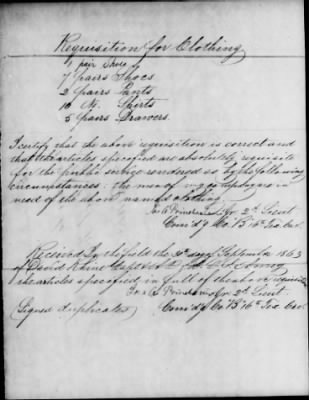 Requisition for Clothing
1 pair Shoes
7 pairs Shoes
2 pairs Pants
10 N. Shirts
5 pairs Drawers.
I certify that the above requisition is correct and
that the articles specified are absolutely requisite
for the public service rendered so by the following
circumstances: the men of my Co
need of the above named clothing.
2d Lieut
Com'd'g Co B 16th Tex Cav.
Received the day of September 1863
of David
the articles specified in full of the above requisition
2d Lieut
(Signed duplicates) Com'd'g Co B 16th Tex Cav.